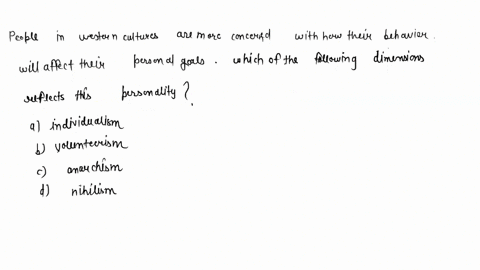 People in western cultures are more concerned with how their behavior
will affect their personal goals. which of the following dimensions
reflects this personality?
a) individualism
b) volunteerism
c) anarchism
d) nihilism